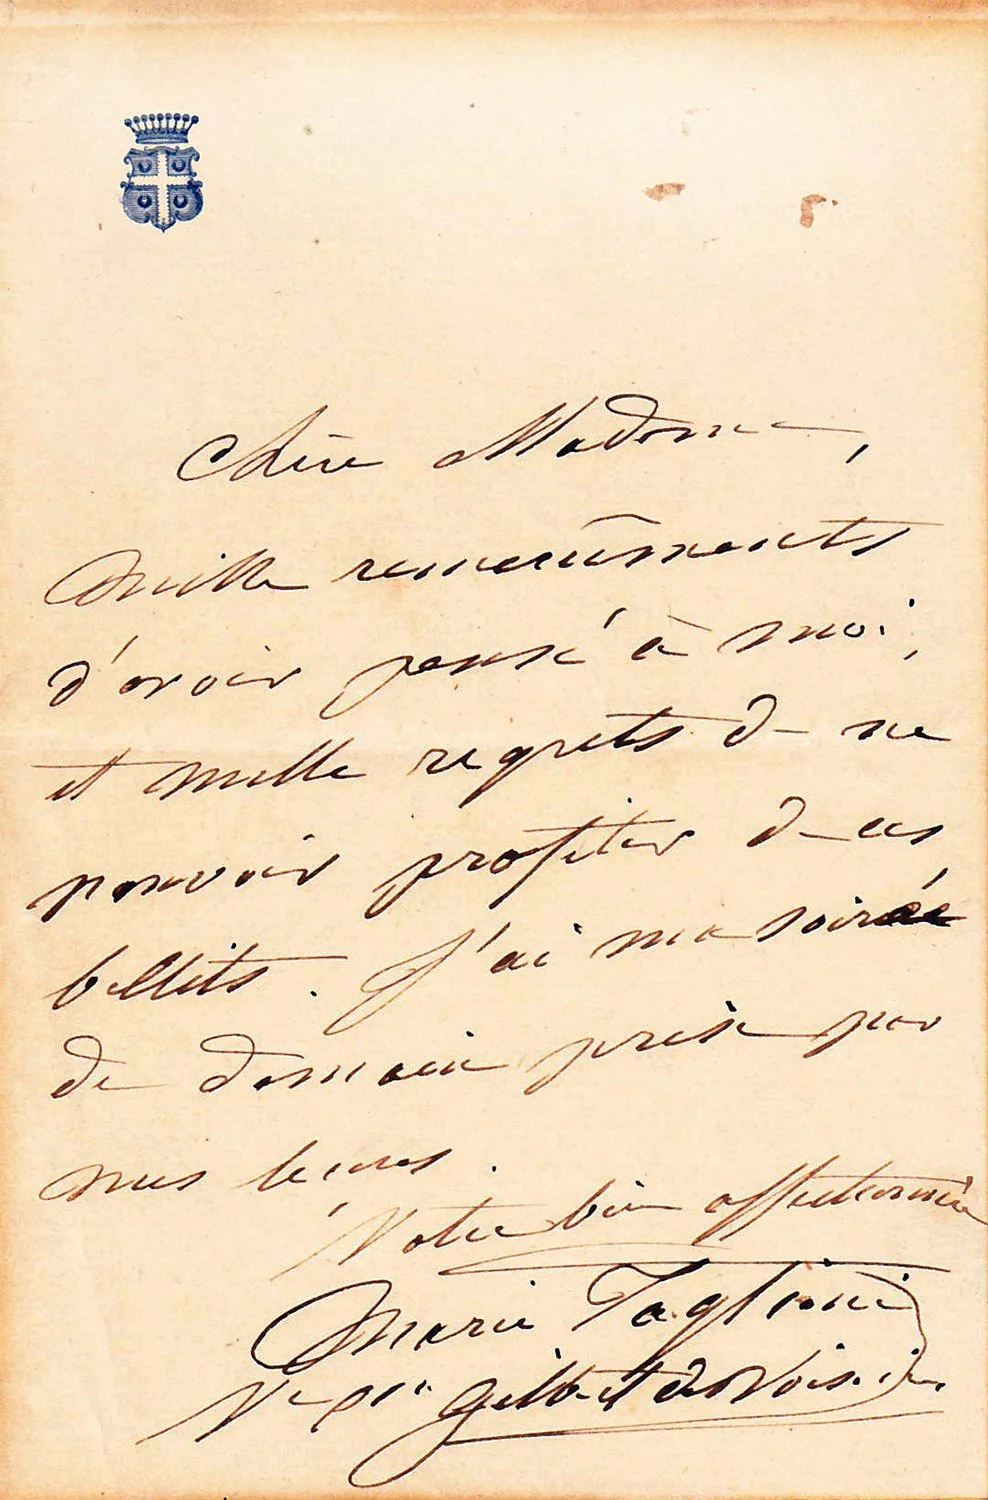 Chère Madame,
Mille remercîments
d'avoir pensé à moi,
et mille regrets de ne
pouvoir profiter de ces
billets. J'ai ma soirée
de demain prise par
mes
Votre bien affectionnée
Marie Taglioni
Gilbert des Voisins